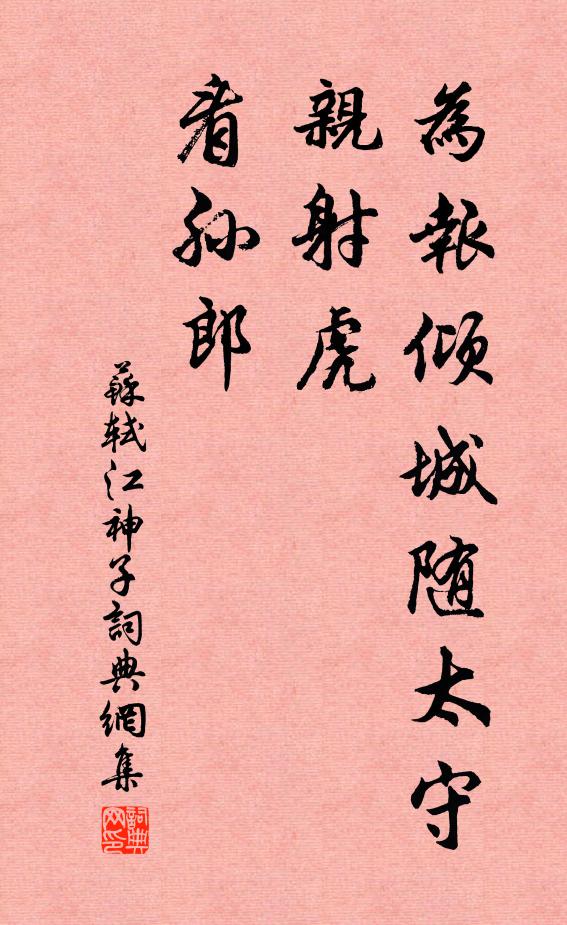 為報傾城随太守
親射虎
看孫郎
蘇軾江神子詞典網集
詞典
网印